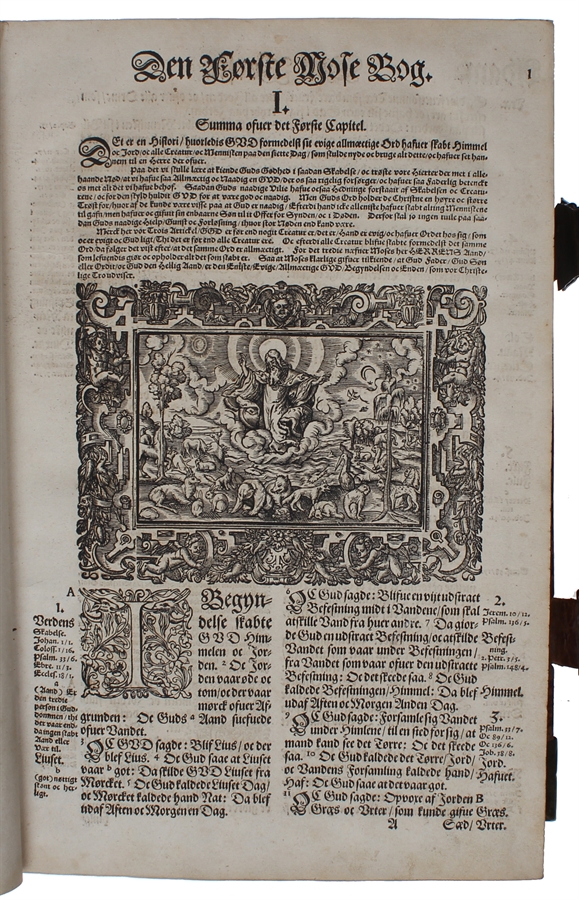 Den Første Mose Bog.
1
I.
Summa ofuer det Første Capitel.
DEt er en Histori / huorledis GVD formedelst sit evige allmectige Ord hafuer skabt Himmel
oc Jord / oc alle Creatur / oc Mennisken paa den siette Dag / som skulde nyde oc bruge alt dette / oc hafuer set hannem
til en Herre der ofuer.
Paa det vi skulle lære at kiende Guds Godhed i saadan Skabelse / oc trøste vore Hierter der met i allehaande
Nød / at vi hafue saa Allmectig oc Naadig en GVD / der os saa rigelig forsørger / oc hafuer saa Faderlig betenckt
os met alt det vi hafue behof. Saadan Guds naadige Vilie hafue ocsaa Hedninge forstaaet af Skabelsen oc Creaturene
/ oc for den skyld holdet GVD for at være god oc naadig. Men Guds Ord holder de Christne en høyre oc større
Trøst for / huor af de kunde være visse paa at Gud er naadig /
til gafn / men hafuer oc gifuit sin eenbaarne Søn til it Offer for Synden / oc i Døden. Derfor skal jo ingen tuile paa saadan
Guds naadige Hielp / Gunst oc Forløsning / huor stor Nøden end kand være.
Merck her vor Trois Artickel /
oc er evigt oc Gud ligt / Thi det er før end alle Creatur ere. Oc efterdi alle Creatur blifue skabte formedelst det samme
Ord / da følger det vist efter / at det samme Ord er allmectigt. For det tredie næfner Moses her HERRENS Aand /
som lefuendis giør oc opholder alt det som skabt er. Saa at Moses klarlige gifuer tilkiende / at Gud Fader / Gud Søn
eller Ordit / oc Gud den Hellig Aand / er den Eeniste / Evige / Allmectige GVD / Begyndelsen oc Enden / som vor Christelige
Tro udviser.
A
1.
Verdens
Skabelse.
Johan. 1/1.
Coloss. 1/16.
Psalm. 33/6.
Ebre. 11/3.
Eccles. 18/1.
a
(Aand) Er
den tredie
person i Guddommen
/ thi
der vaar endda
ingen skabt
Aand eller
Vær til.
Liuset.
b
(got) nættigt
skønt oc herligt.
I Begyndelse
skabte
GVD Himmelen
oc Jorden.
2 Oc Jorden
vaar øde oc
tom / oc det vaar
mørck ofuer Afgrunden:
Oc Guds a Aand suefuede
ofuer Vandet.
3 OC GVD sagde: Blif Lius / oc der
blef Lius. 4 Oc Gud saae at Liuset
vaar b got: Da skilde GVD Liuset fra
Mørcket. 5 Oc Gud kaldede Liuset Dag /
oc Mørcket kaldede hand Nat: Da blef
udaf Aften oc Morgen en Dag.
6 OC Gud sagde: Blifue en vijt udstract
Befestning midt i Vandene / som skal
atskille Vand fra huer andre. 7 Da giorde
Gud en udstract Befestning / oc atskilde
Vandet som vaar under Befestningen /
fra Vandet som vaar ofuer den udstracte
Befestning: Oc det skeede saa. 8 Oc Gud
kaldede Befestningen / Himmel: Da blef
udaf Aften oc Morgen Anden Dag.
9 OC Gud sagde: Forsamle sig Vandet
under Himlene / til en sted for sig / at
mand kand see det Tørre: Oc det skeede
saa. 10 Oc Gud kaldede det Tørre / Jord /
oc Vandens Forsamling kaldede hand /
Haf: Oc Gud saae at det vaar got.
11 OC Gud sagde: Opvoxe af Jorden
Græs oc Vrter / som kunde gifue
A Sæd /
2.
Jerem. 10/12.
Psalm. 136/5.
Befestning.
2. Petr. 3/5.
Psalm. 148/4.
Himmel.
3.
Psalm. 33/7.
Oc 89/12.
Oc 136/6.
Job. 38/8.
Jord.
Hafuet.
B
Græs.
Vrter.